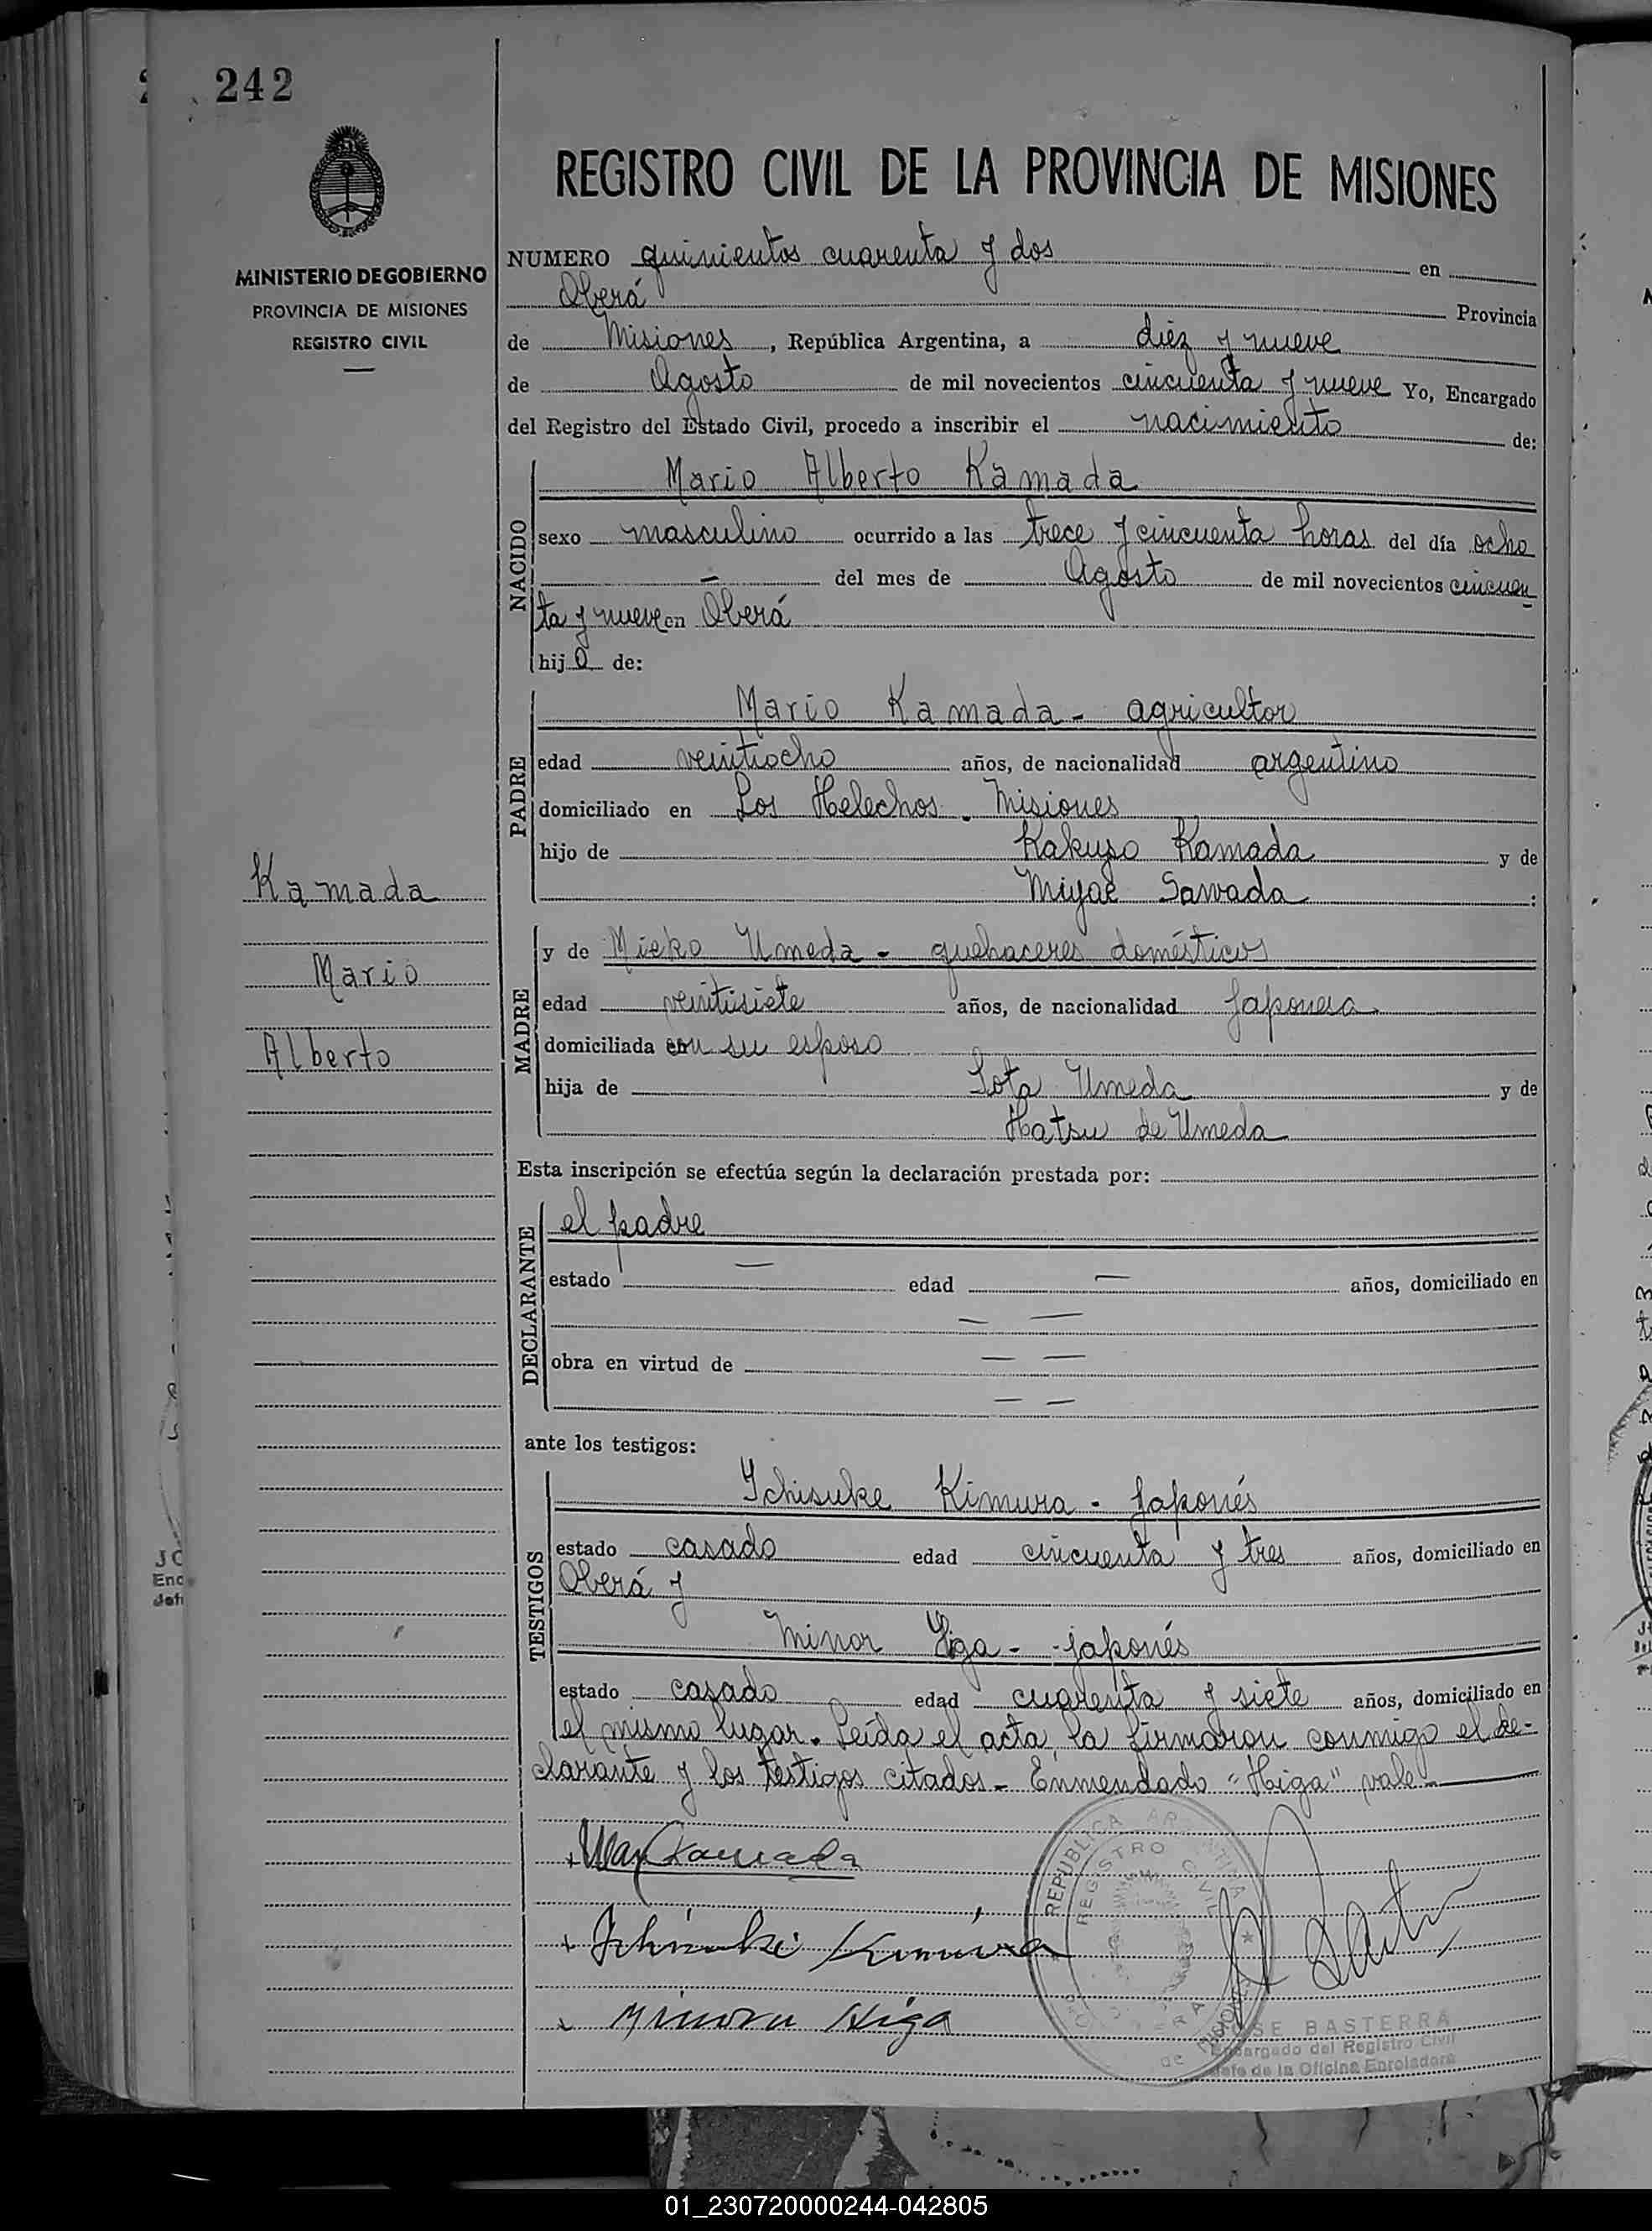 242
MINISTERIO DE GOBIERNO
PROVINCIA DE MISIONES
REGISTRO CIVIL
Kamada
Mario
Alberto
REGISTRO CIVIL DE LA PROVINCIA DE MISIONES
NUMERO quinientos cuarenta y dos en
Oberá Provincia
de Misiones, República Argentina, a diez y nueve
de Agosto de mil novecientos cincuenta y nueve Yo, Encargado
del Registro del Estado Civil, procedo a inscribir el nacimiento de:
NACIDO
Mario Alberto Kamada
sexo masculino ocurrido a las trece y cincuenta horas del día ocho
— del mes de Agosto de mil novecientos cincuen
ta y nueve en Oberá
hijo de:
PADRE
Mario Kamada - agricultor
edad veintiocho años, de nacionalidad argentino
domiciliado en Los Helechos. Misiones
hijo de Kakuzo Kamada y de
Miyae Sawada :
MADRE
y de Mieko Umeda - quehaceres domésticos
edad veintisiete años, de nacionalidad Japonesa
domiciliada con su esposo
hija de Sota Umeda y de
Hatsu de Umeda
Esta inscripción se efectúa según la declaración prestada por:
DECLARANTE
el padre
estado — edad — años, domiciliado en
— —
obra en virtud de — —
— —
ante los testigos:
TESTIGOS
Ichisuke Kimura - Japonés
estado casado edad cincuenta y tres años, domiciliado en
Oberá y
Minor Higa - japonés
estado casado edad cuarenta y siete años, domiciliado en
el mismo lugar. Leída el acta, la firmaron conmigo el de-
clarante y los testigos citados - Enmendado "Higa" vale
Kamada
Ichisuke Kimura
Minoru Higa
REPUBLICA ARGENTINA
REGISTRO CIVIL
OBERA
DE MISIONES
JOSE BASTERRA
Encargado del Registro Civil
Jefe de la Oficina Enroladora
01_230720000244-042805